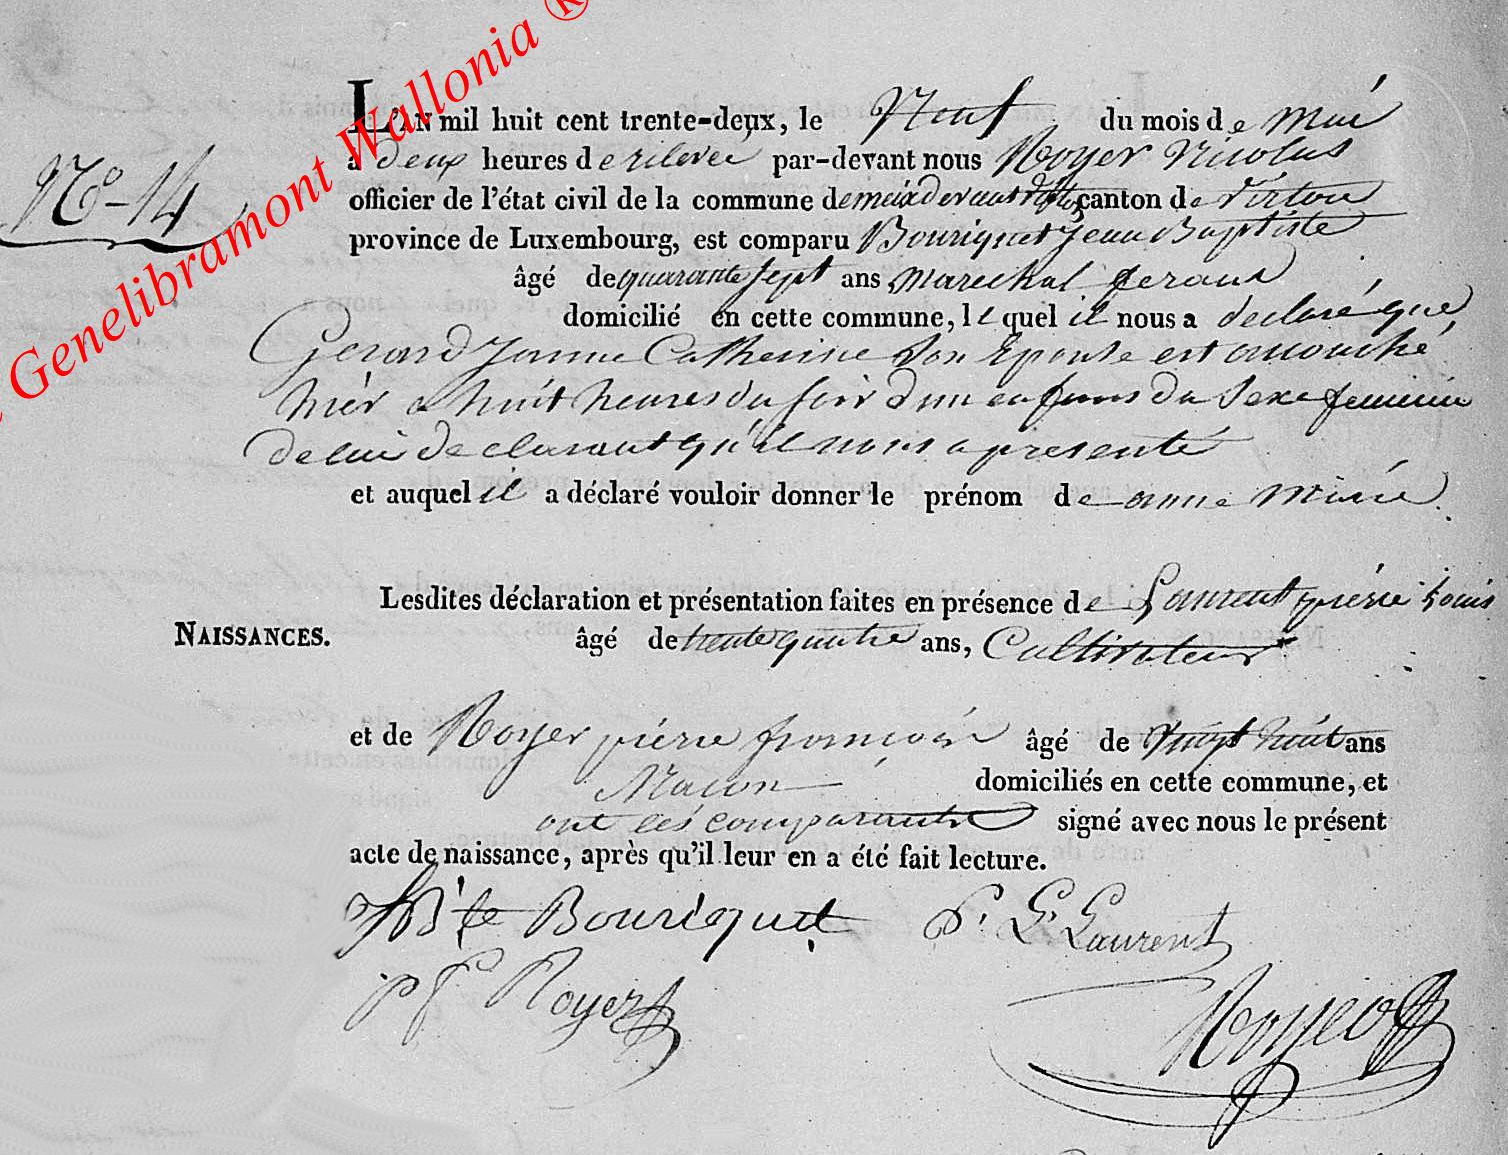 Genelibramont Wallonia ®
N° 14
L'AN mil huit cent trente-deux, le Neuf du mois de mai
à deux heures de relevée par-devant nous Royer Nicolas
officier de l'état civil de la commune de meix devant virton canton de Virton
province de Luxembourg, est comparu Bouriquet Jean Baptiste
âgé de quarante sept ans marechal feraux
domicilié en cette commune, lequel il nous a declaré que
Gerard Janne Catherine son Epouse est acouché
hièr a huit heures du soir d'un enfans du sexe feminin
de lui declarant qu'il nous a presenté
et auquel il a déclaré vouloir donner le prénom de anne Marie
Lesdites déclaration et présentation faites en présence de Laurent pierre Louis
NAISSANCES.
âgé de trente quatre ans, Cultivateur
et de Royer pierre françois âgé de vingt huit ans
Macon domiciliés en cette commune, et
ont les comparants signé avec nous le présent
acte de naissance, après qu'il leur en a été fait lecture.
JB te Bouriquet P. L. Laurent
p f Royer
Royer